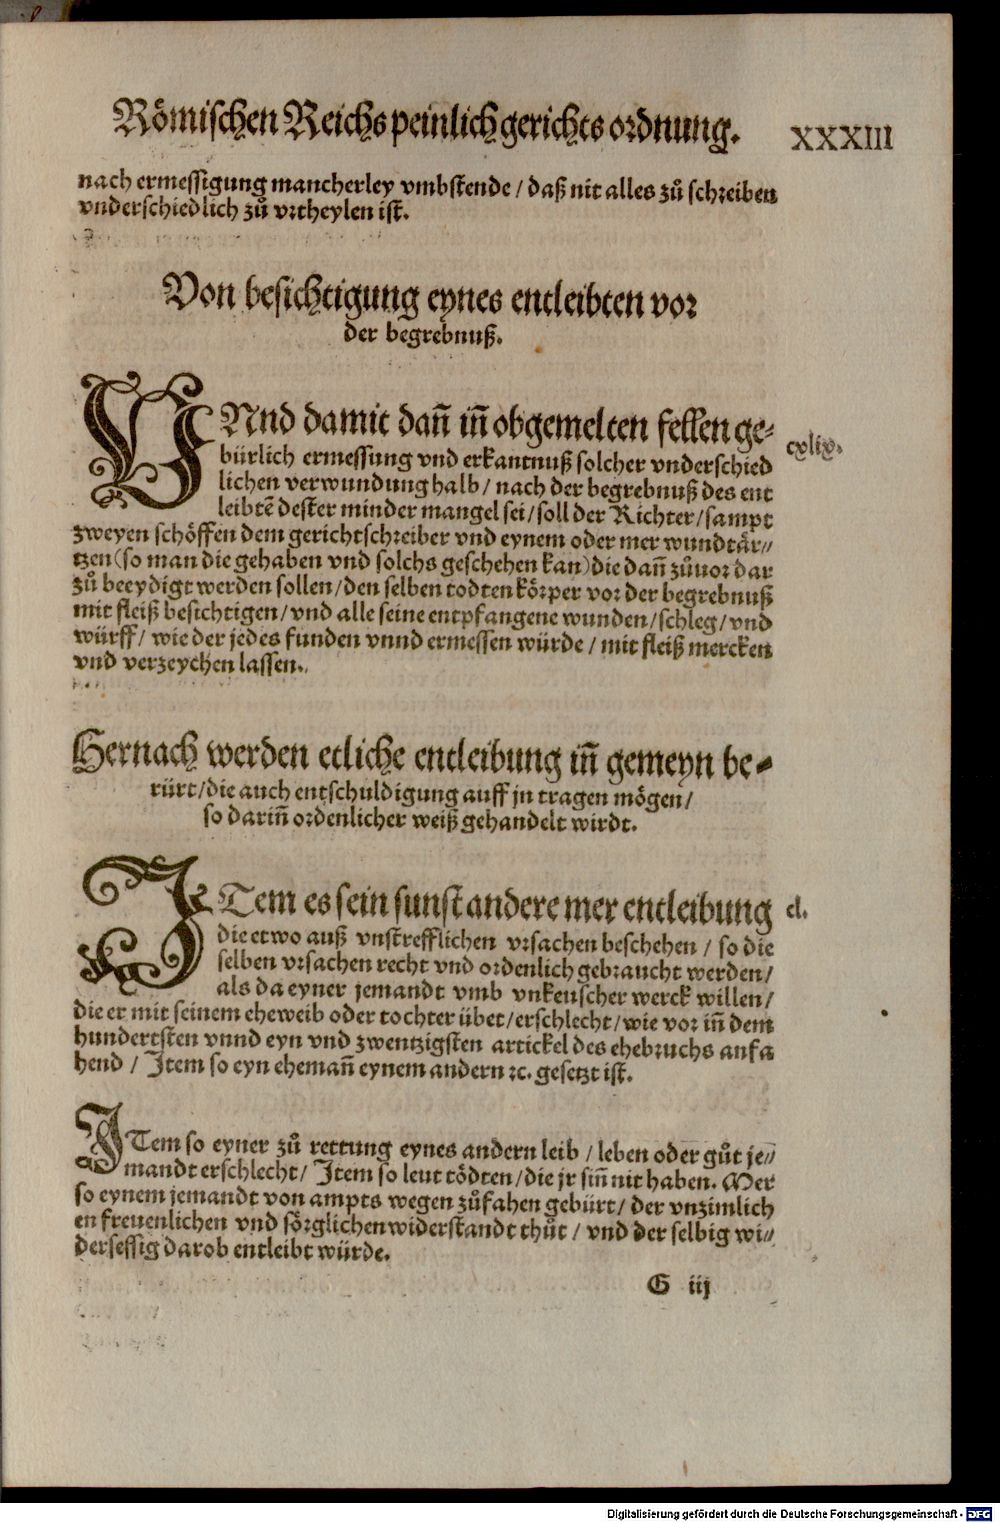 Römischen Reichs peinlich gerichts ordnung. XXXIII
nach ermessigung mancherley vmbstende / daß nit alles zů schreiben
vnderschiedlich zů vrtheylen ist.
Von besichtigung eynes entleibten vor
der begrebnuß.
VNnd damit dañ iñ obgemelten fellen ge⸗ cxlix.
bürlich ermessung vnd erkantnuß solcher vnderschied
lichen verwundung halb / nach der begrebnuß des ent
leibtẽ dester minder mangel sei / soll der Richter / sampt
zweyen schöffen dem gerichtschreiber vnd eynem oder mer wundtär⸗
tzen (so man die gehaben vnd solchs geschehen kan) die dañ zůuor dar
zů beeydigt werden sollen / den selben todten körper vor der begrebnuß
mit fleiß besichtigen / vnd alle seine entpfangene wunden / schleg / vnd
würff / wie der jedes funden vnnd ermessen würde / mit fleiß mercken
vnd verzeychen lassen.
Hernach werden etliche entleibung iñ gemeyn be⸗
rürt / die auch entschuldigung auff jn tragen mögen /
so dariñ ordenlicher weiß gehandelt wirdt.
ITem es sein sunst andere mer entleibung cl.
die etwo auß vnstrefflichen vrsachen beschehen / so die
selben vrsachen recht vnd ordenlich gebraucht werden /
als da eyner jemandt vmb vnkeuscher werck willen /
die er mit seinem eheweib oder tochter übet / erschlecht / wie vor iñ dem
hundertsten vnnd eyn vnd zwentzigsten artickel des ehebruchs anfa
hend / Item so eyn ehemañ eynem andern ꝛc. gesetzt ist.
ITem so eyner zů rettung eynes andern leib / leben oder gůt je⸗
mandt erschlecht / Item so leut tödten / die jr siñ nit haben. Mer
so eynem jemandt von ampts wegen zůfahen gebürt / der vnzimlich
en freuenlichen vnd sörglichen widerstandt thůt / vnd der selbig wi⸗
dersessig darob entleibt würde.
G iij
Digitalisierung gefördert durch die Deutsche Forschungsgemeinschaft - DFG